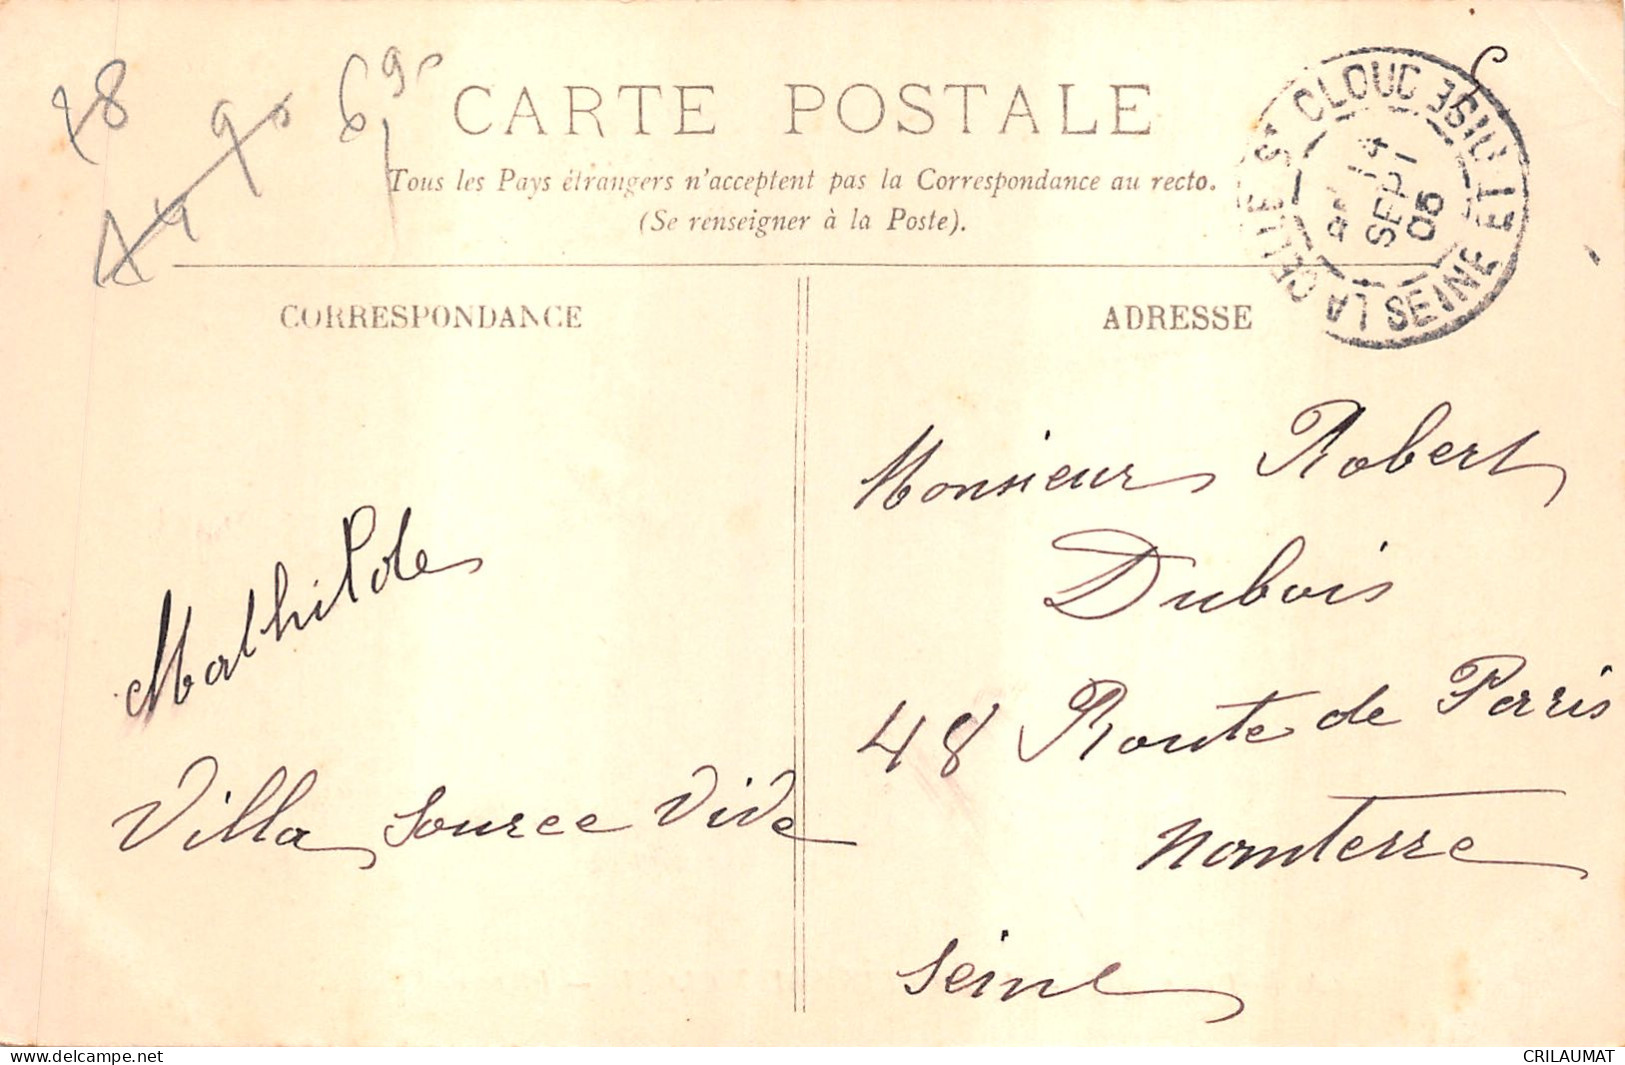 78
6,90
CARTE POSTALE
Tous les Pays étrangers n'acceptent pas la Correspondance au recto.
(Se renseigner à la Poste).
LA CELLE St CLOUD SEINE ET OISE
14
SEPT
05
CORRESPONDANCE
ADRESSE
Mathilde
Villa Source Vive
Monsieur Robert
Dubois
48 Route de Parris
Nanterre
Seine
delcampe.net
CRILAUMAT